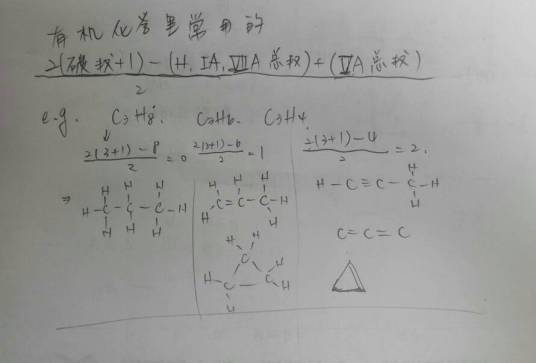 有机化学里常用的
2(碳数+1)-(H, IA, VIIA总数)+(VA总数)
2
e.g. C3H8. C3H6. C3H4.
2(3+1)-8 2(3+1)-6 2(3+1)-4
2 =0 2 =1 2 =2.
⇒
H H H H H H
H-C-C-C-H C=C-C-H H-C≡C-C-H
H H H H H H
H H C=C=C
C
H C-C H
H H